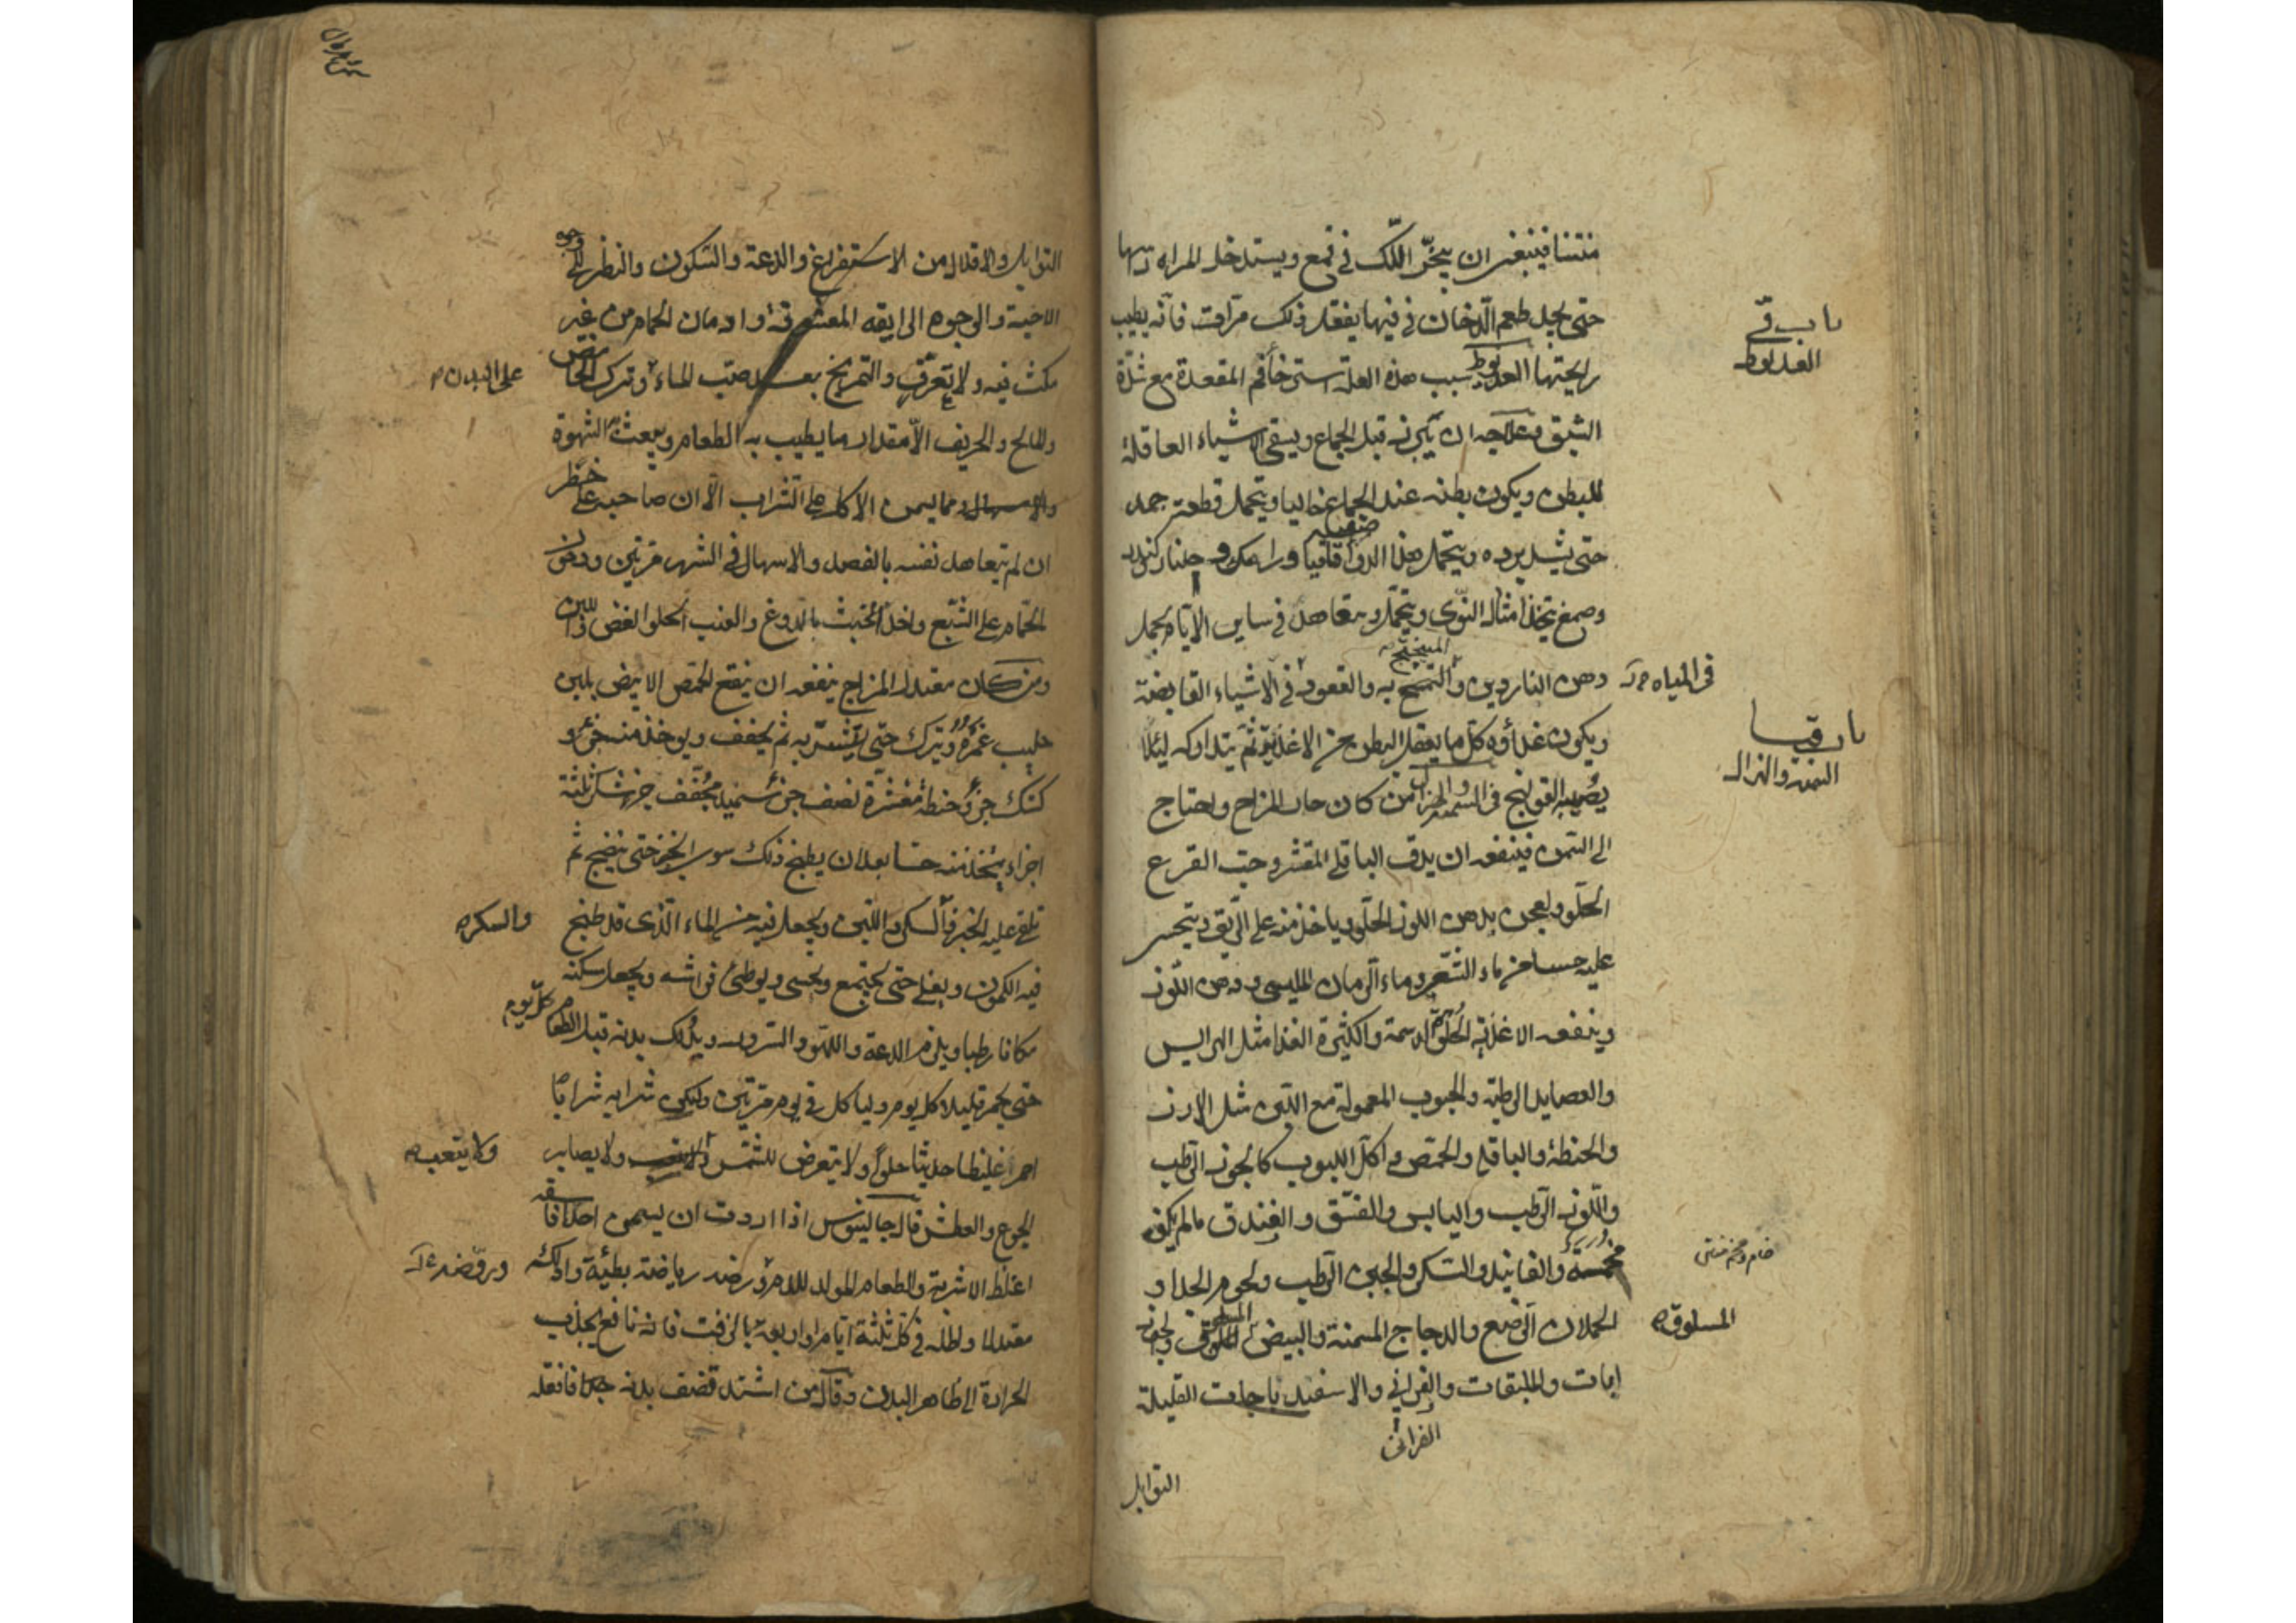 منتنا فينبغى ان يبخّر اللّك فى قمع ويستدخل المراه راسها
حتى يجد طعم الدّخان فى فيها يفعل ذلك مرّات فانّه يطيب
باب فى
العديوط
رايحتها العديوط سبب هذه العلة استرخاء فم المقعدة مع شدّة
الشبق وعلاجه ان يبرز قبل الجماع ويسقى الاشياء العاقلة
للبطن ويكون بطنه عند الجماع خاليا ويتحمل قطعة جمد
حتى يشد برده ويتحمل بهذا الدوا اقاقيا ورامك و جلنار كندر
وصمغ يتخذ امثال النّوى ويتحمّل ويتعاهد فى ساير الايّام بحمل
دهن الناردين والتمسح به والقعود فى الاشياء القابضة
فى المياه
ويكون غذاؤه كل ما يعقل البطن من الاغذية ثم يتداركه ليئلا
باب فى
السمنة والهزال
يصيبه القولنج فى السمنة والهزال من كان حار المزاج واحتاج
الى السّمن فينفعه ان يدق الباقلى المقشر وحبّ القرع
الحلو ويعجن بدهن اللوز الحلو وياخذ منه على الرّيق ويتحسى
عليه حسا من ماء الشّعير وماء الرمان المليسى ودهن اللّوز
وينفعه الاغذية الحلوة الدسمة والكثيرة الغذا مثل الهرايس
والعصايد الرطبة والحبوب المعمولة مع اللّبن مثل الارز
والحنطة والباقلى والحمّص واكل اللبوب كالجوز الرّطب
واللّوز الرّطب واليابس والفستق والفندق مالم يكن
والفانيذ والسكر والجبن الرّطب ولحوم الجدا و
الحملان الرضع والدجاج المسمنة والبيض
المسلوقة
والملبقات والفرانى والاسفيدباجات القليلة
الفرانى
التوابل
التوابل والاقلال من الاستفراغ والدعة والسّكون والنظر الى وجوه
الاحبة والوجوه الرايقة المعشوقة وادمان الحمام من غير
مكث فيه ولا تعرّق والتمريخ بعد صبّ الماء وترك الحامض
على البدن
والمالح والحريف الّا مقدار ما يطيب به الطعام ويبعث الشهوة
والاسهال ومما يسمن الاكل على الشراب الّا ان صاحبه على خطر
ان لم يتعاهد نفسه بالفصد والاسهال فى الشهر مرّتين ودخول
الحمّام على الشّبع واخذ الخبث بالدوغ والعنب الحلو الغض
ومن كان معتدل المزاج ينفعه ان ينقع الحمّص الابيض بلبن
حليب غمرة ويترك حتى يتشرّبه ثم يجفف ويوخذ منه جزؤ و
كشك جزؤ حنطة مقشرة نصف جزؤ سميد مجفّف جزء سكر ثلثة
اجزاء يتخذ منه حسا بعد ان يطبخ ذلك سوى الخبز حتى ينضج ثم
يلقى عليه الخبز والسكر واللّبن ويجعل فيه من الماء الّذى قد طبخ
والسكر
فيه الكمون ويغلى حتى يجتمع ويحسى ويوطئ فراشه ويجعل سكنه
مكانا رطبا ويلزم الدعة واللهو والسرور ويدلك بدنه قبل الطعام كلّ يوم
حتى يحمر قليلا كل يوم وليا كل فى يوم مرّتين وليكن شرابه شرابا
احمر غليظا حديثا حلوا ولا يتعرض للشّمس ولا يصابر
ولا يتعب
الجوع والعطش قال جالينوس اذا اردت ان يسمن احدا فاسقه
اغلظ الاشربة والطعام المولد للدم ورضه رياضة بطيئة وادلكه
وروّضه
معتدلا واطله فى كل ثلثة ايّام او اربعة بالزفت فانه نافع يجذب
الحرارة الى ظاهر البدن وقال من اشتد قضف بدنه جدا فانقله